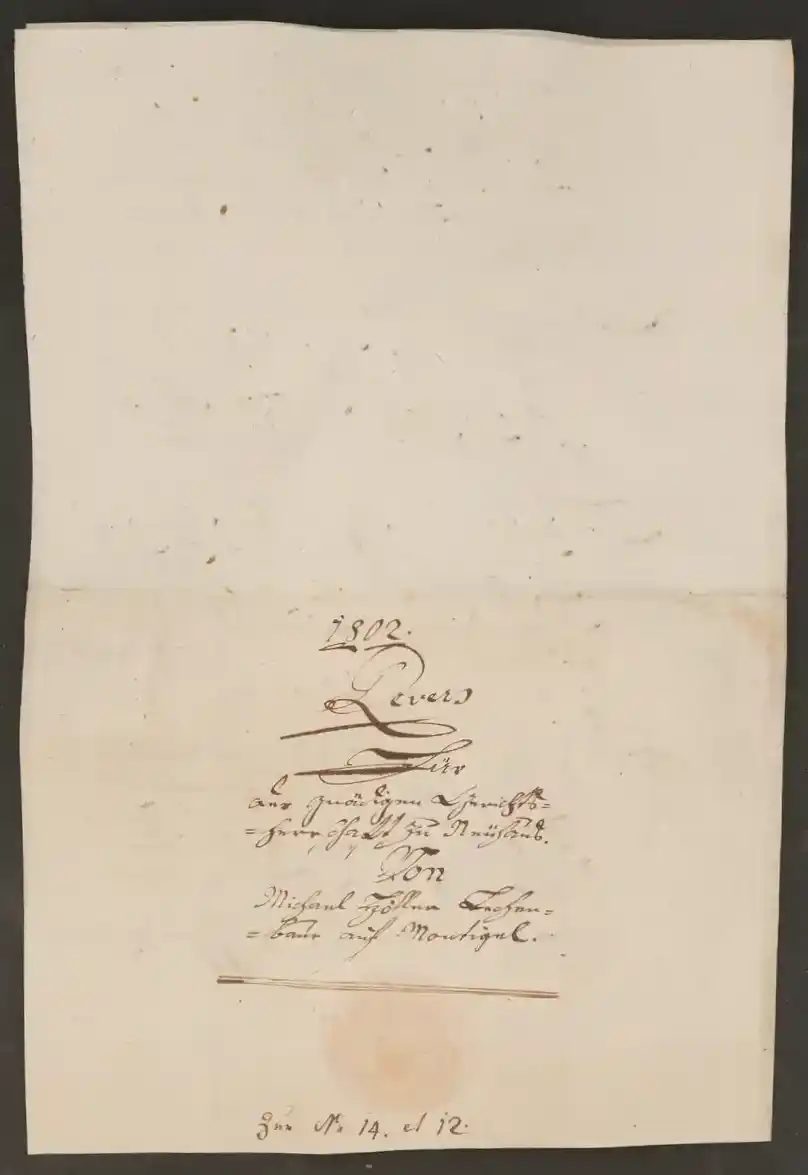 1802.
Revers
Für
der gnädigen Gerichts=
=herrschaft zu Neuhaus.
Von
Michael Höller Lechen=
=baur auf Montigel.
Zur No 14. et 12.